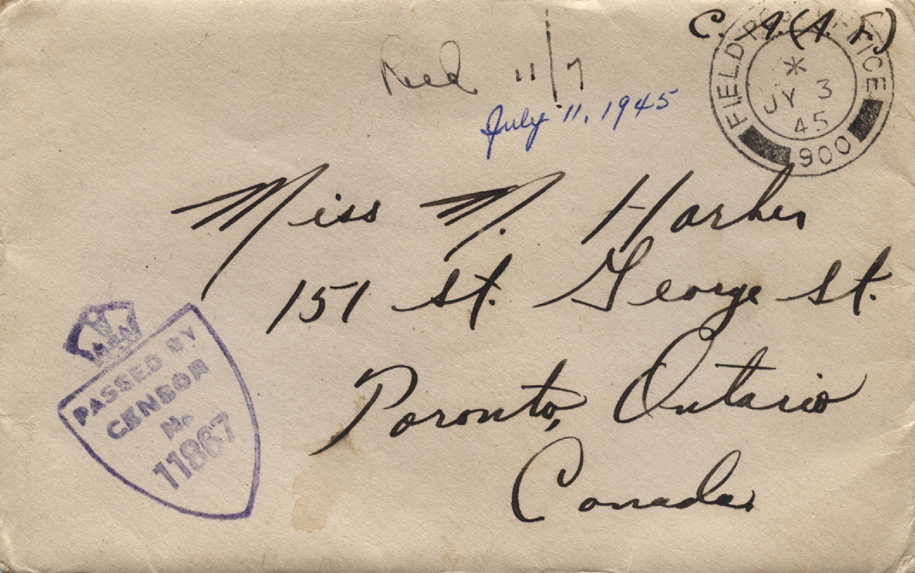 C. A. (A. F.)
FIELD POST OFFICE
*
JY 3
45
900
Rec'd 11/7
July 11, 1945
Miss M. Harher
151 St. George St.
Toronto, Ontario
Canada
PASSED BY
CENSOR
No
11867